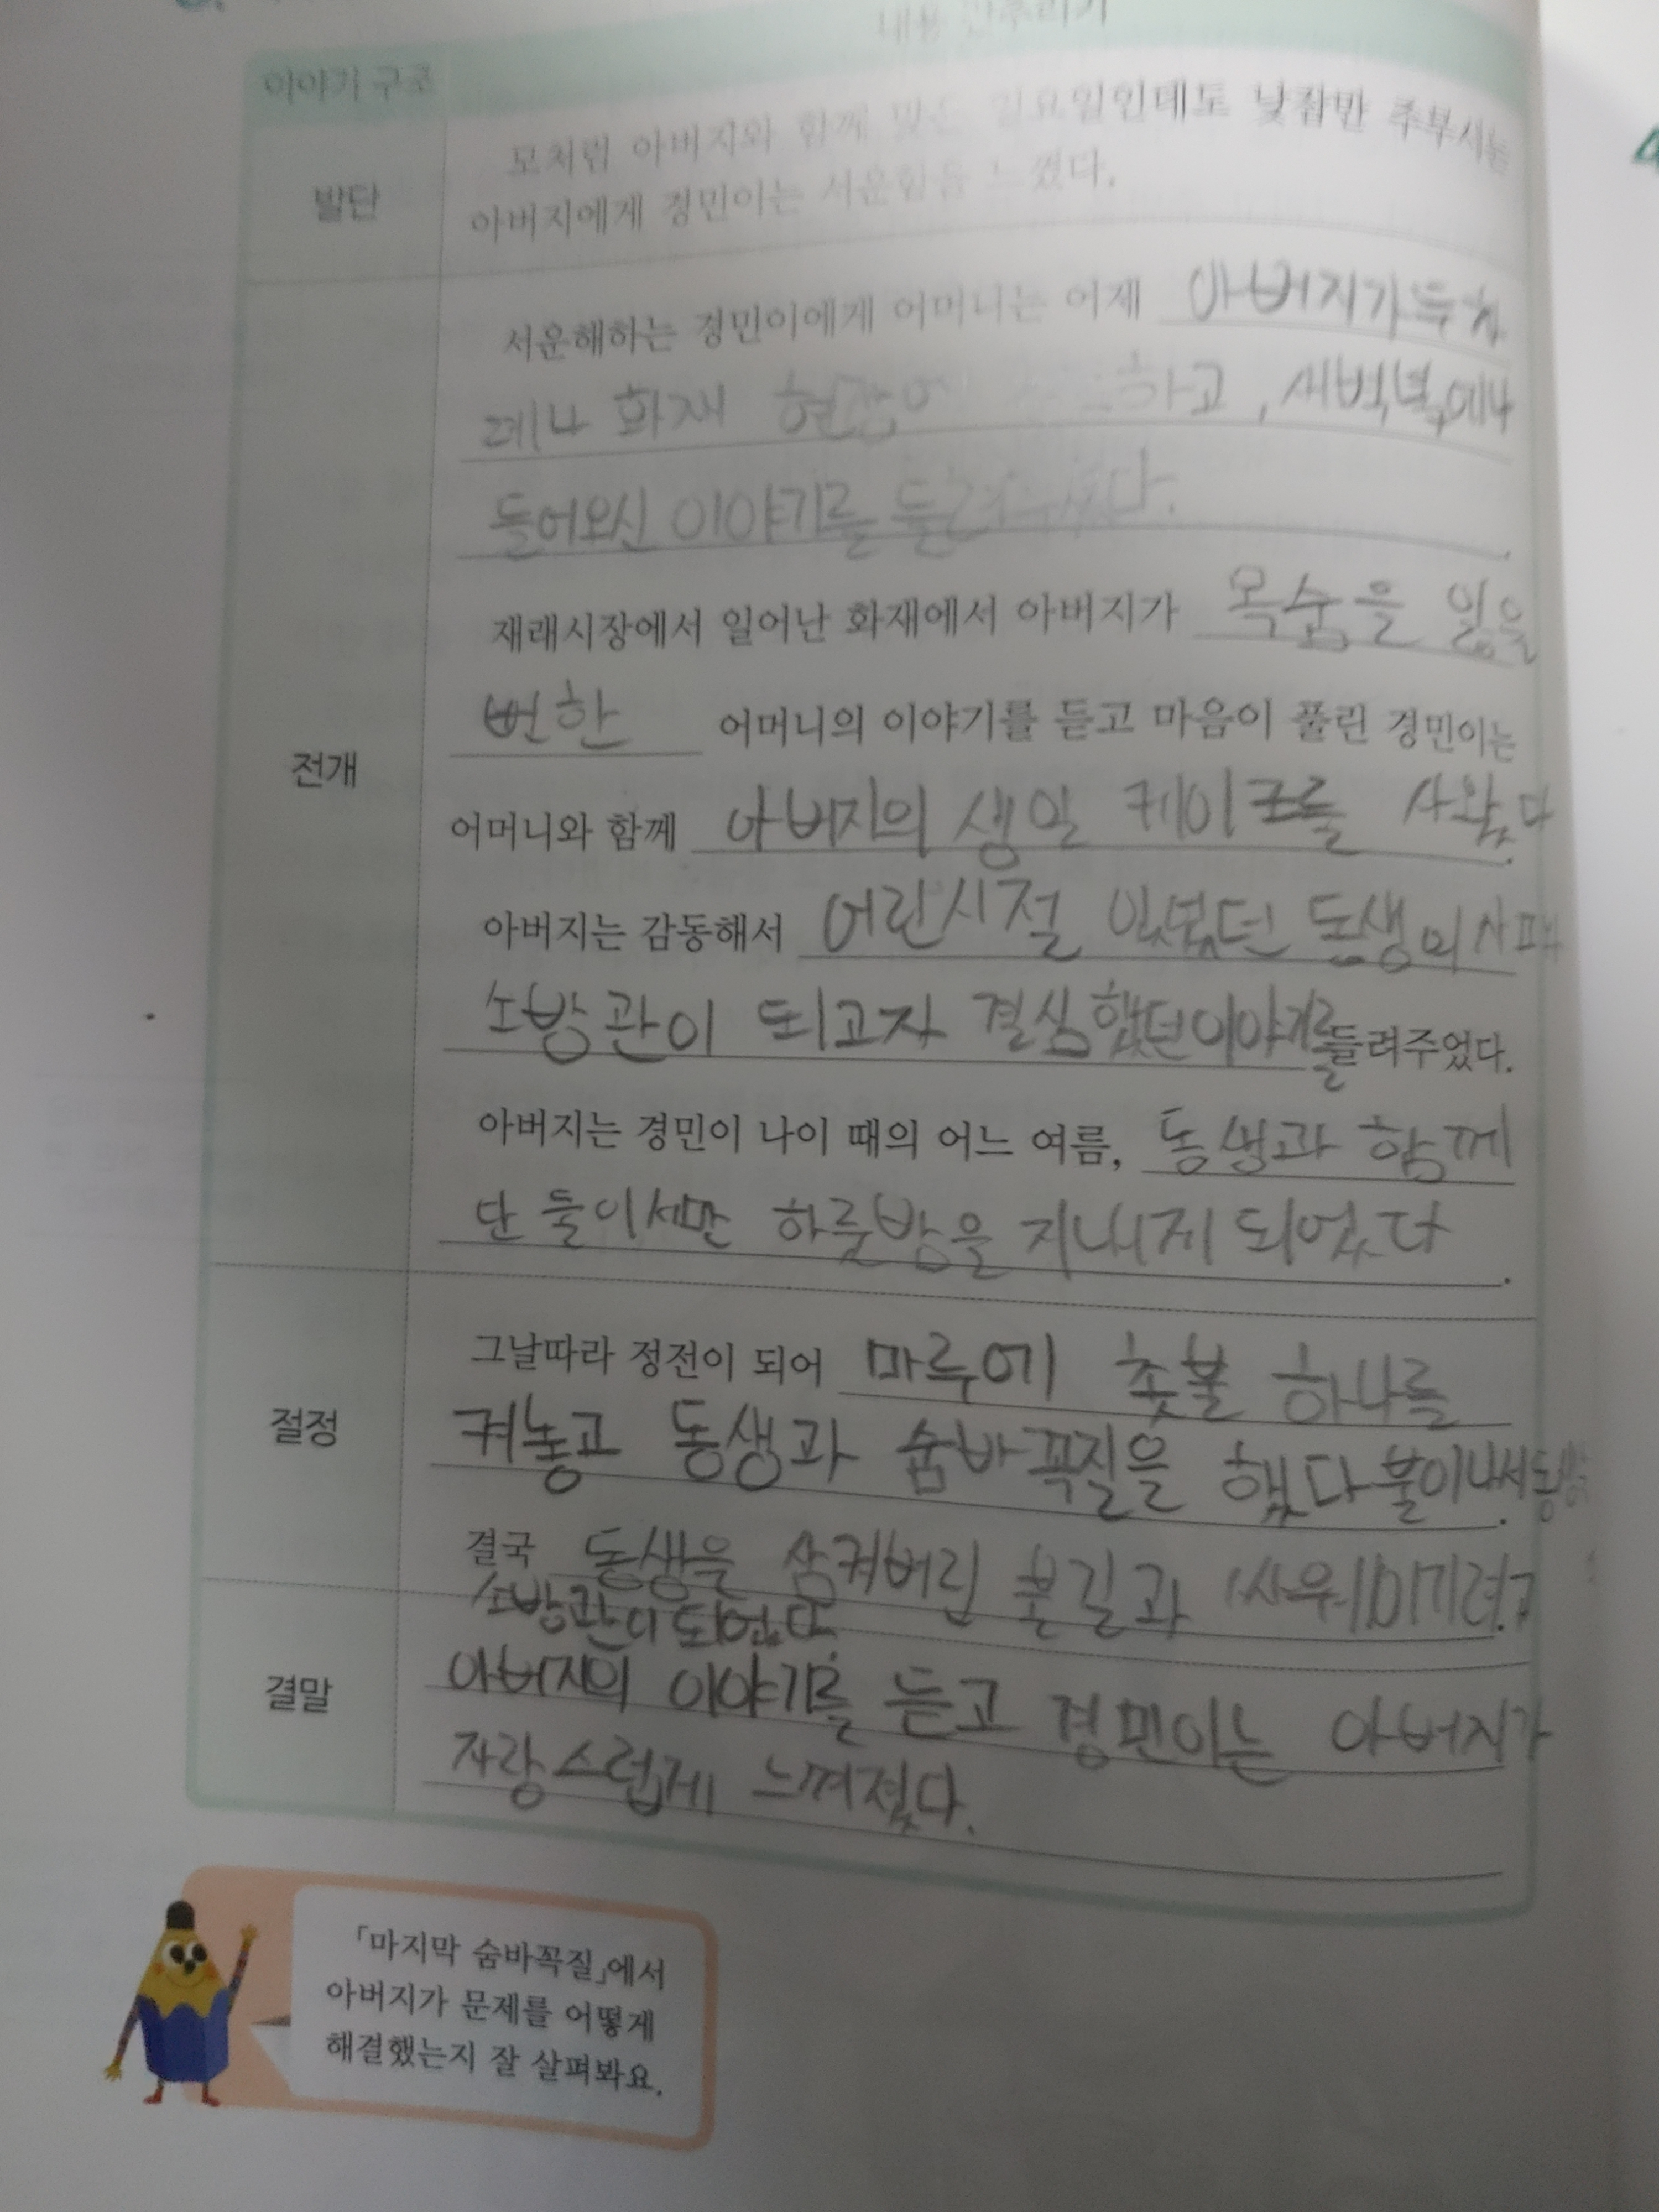 내용 간추리기
이야기 구조
발단
모처럼 아버지와 함께 맞는 일요일인데도 낮잠만 주무시는
아버지에게 경민이는 서운함을 느꼈다.
전개
서운해하는 경민이에게 어머니는 어제 아버지가 두 차
례나 화재 현장에 하고, 새벽녘에나
들어오신 이야기를 들려주셨다.
재래시장에서 일어난 화재에서 아버지가 목숨을 잃을
뻔한 어머니의 이야기를 듣고 마음이 풀린 경민이는
어머니와 함께 아버지의 생일 케이크를 사왔다.
아버지는 감동해서 어린시절 있었던 동생의
소방관이 되고자 결심했던 이야기를 들려주었다.
아버지는 경민이 나이 때의 어느 여름, 동생과 함께
단 둘이서만 하룻밤을 지내게 되었다.
절정
그날따라 정전이 되어 마루에 촛불 하나를
켜놓고 동생과 숨바꼭질을 했다 불이나서
결국 동생을 삼켜버린 불길과 싸워 이기려고
소방관이 되었다.
결말
아버지의 이야기를 듣고 경민이는 아버지가
자랑스럽게 느껴졌다.
「마지막 숨바꼭질」에서
아버지가 문제를 어떻게
해결했는지 잘 살펴봐요.